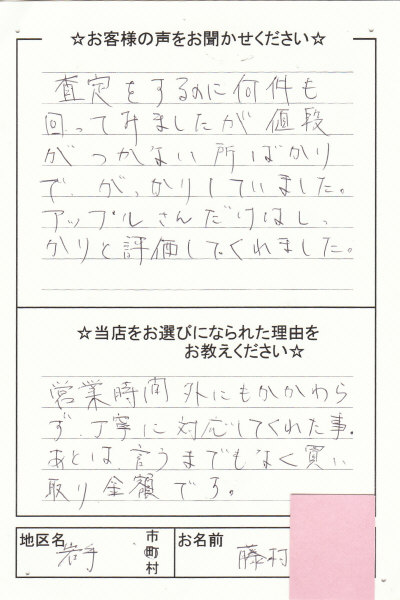 ☆お客様の声をお聞かせください☆
査定をするのに何件も
回ってみましたが値段
がつかない所ばかり
で、がっかりしていました。
アップルさんだけはしっ
かりと評価してくれました。
☆当店をお選びになられた理由を
お教えください☆
営業時間外にもかかわら
ず、丁寧に対応してくれた事。
あとは言うまでもなく買い
取り金額です。
地区名 岩手 市町村 お名前 藤村